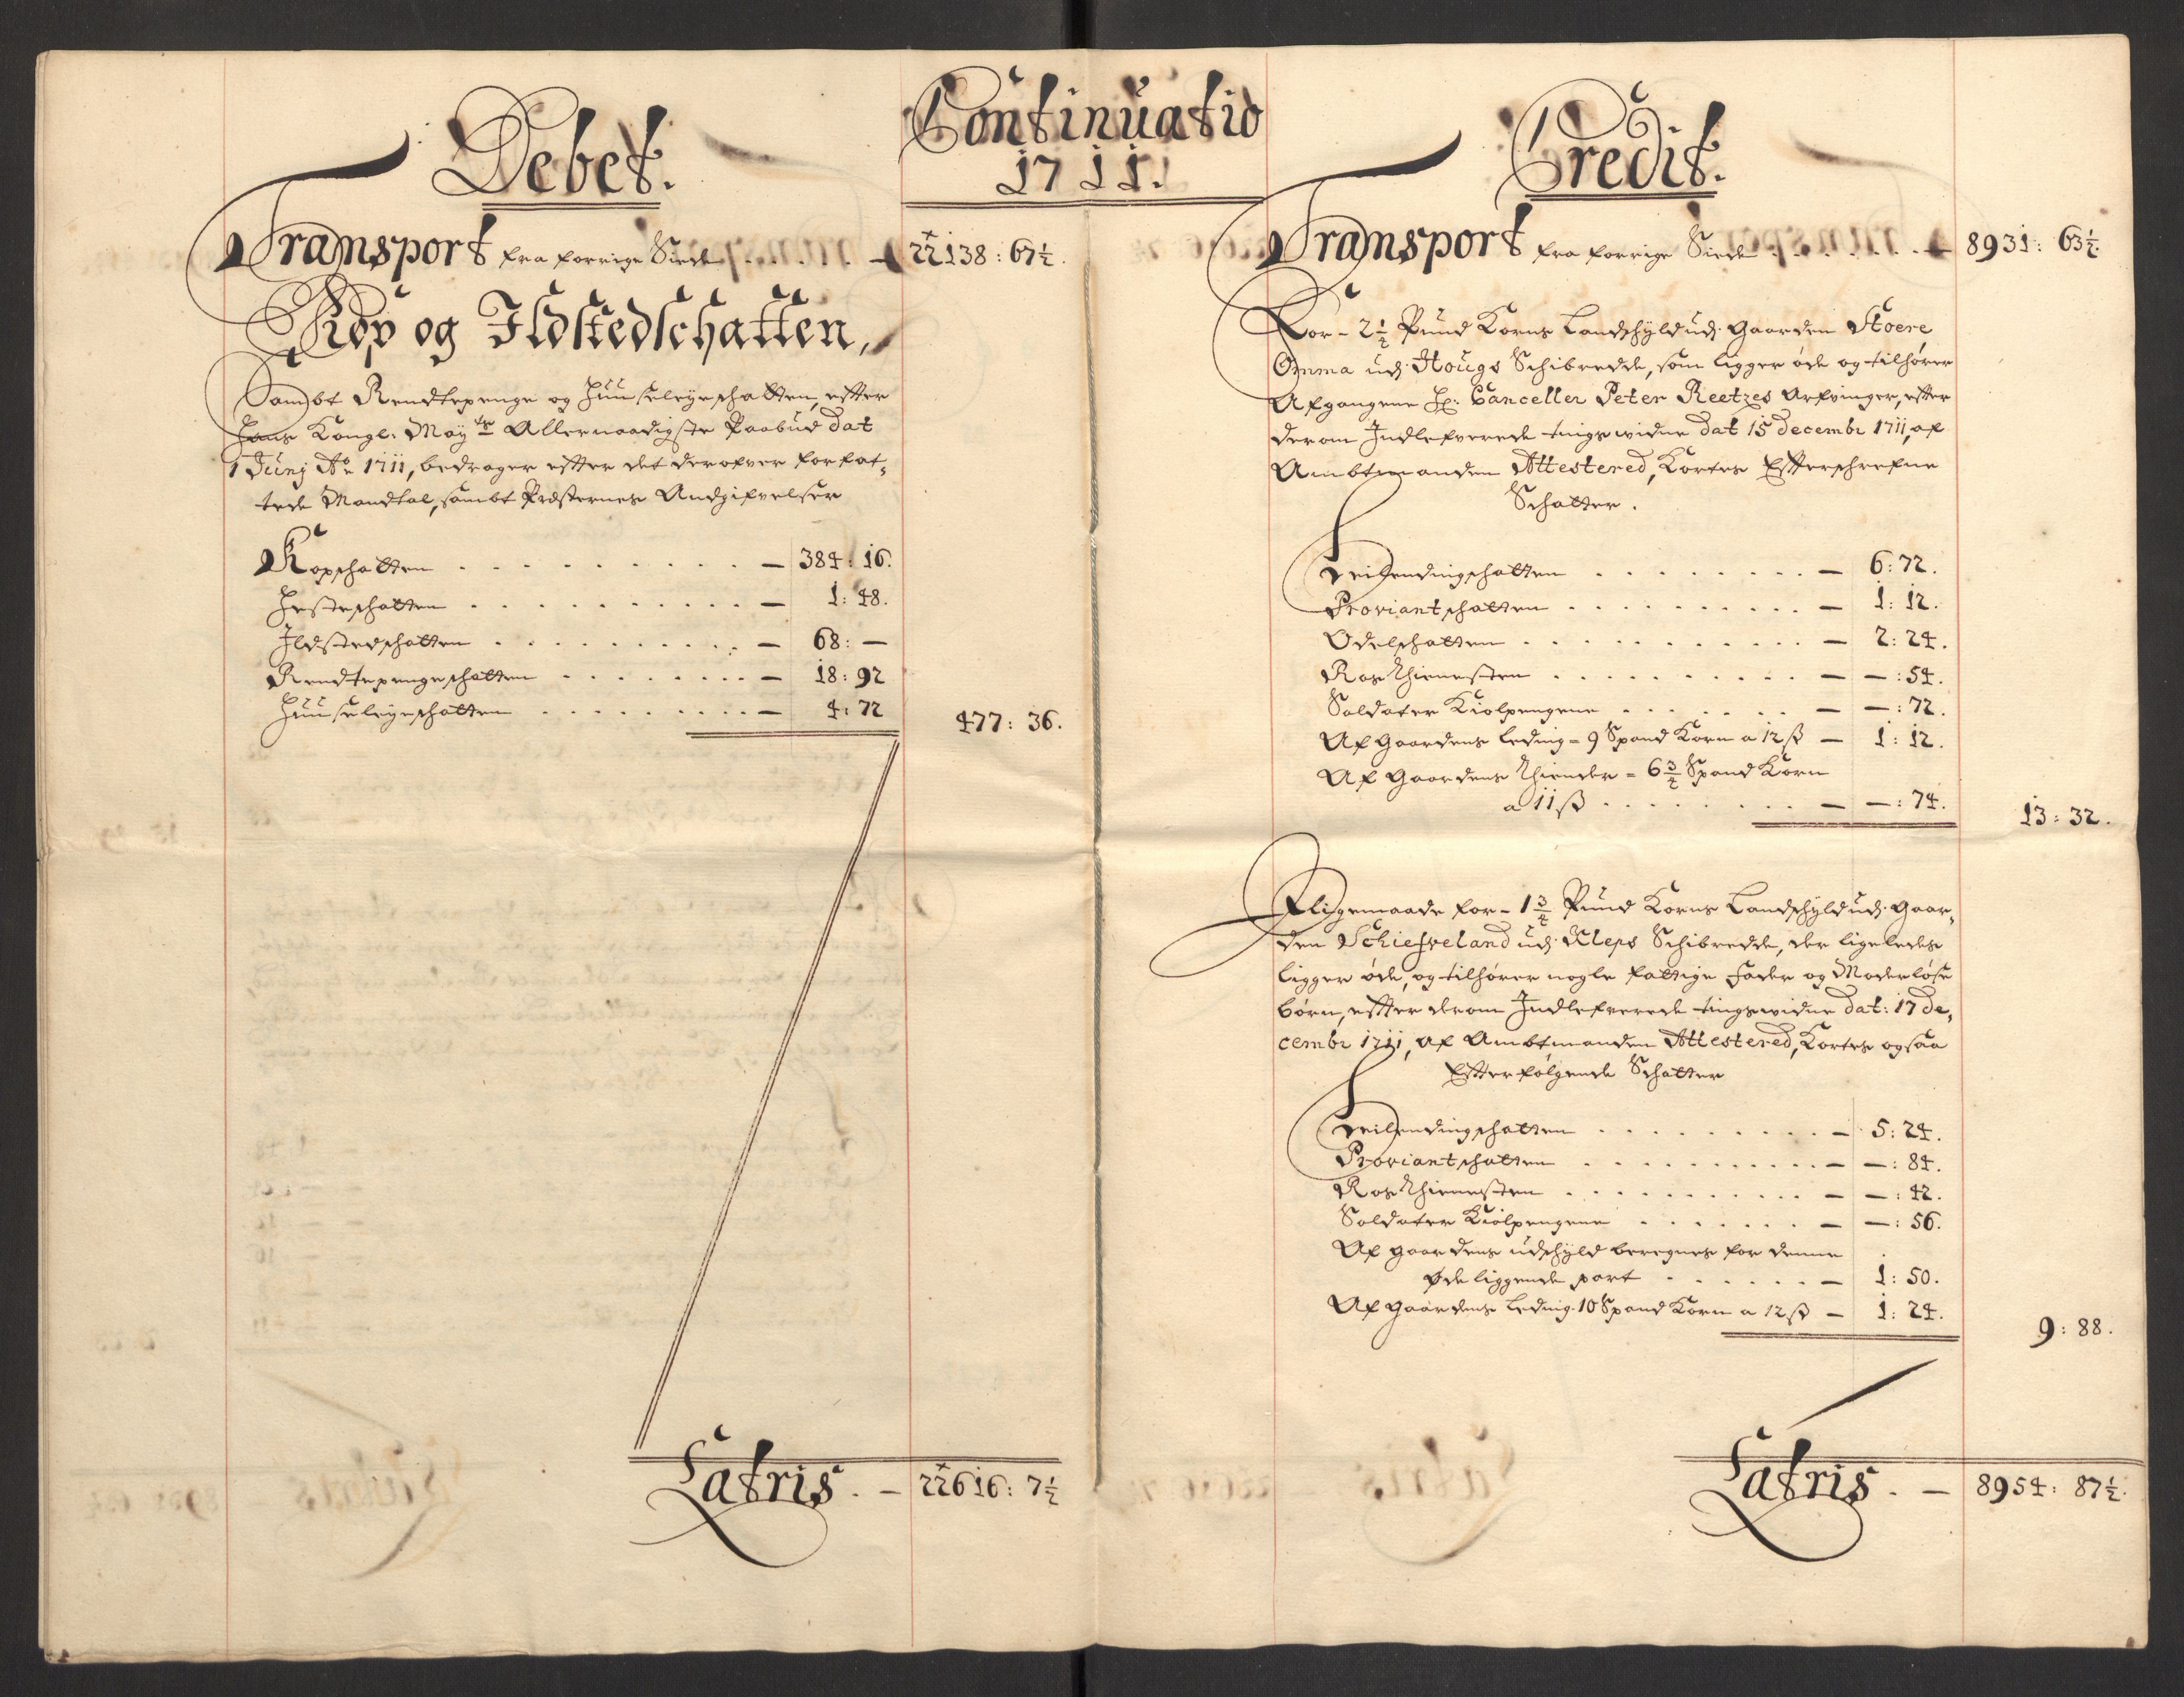 Debet.
Continuatio
1711.
Transport fra forrige Siede - 22138: 67½.
Kop og Ildstedschatten,
Sambt Rendtepenge og Huusleyeschatten, effter
Hans Kongl: May:ts Allernaadigste Paabud dat
1 Junj Ao 1711, bedrager effter det derofver forfat-
tede Mandtal, sambt Præsternes Andgifvelser
Kopschatten - 384: 16.
Hesteschatten - 1: 48.
Ildstedschatten - 68: —
Rendtepengeschatten - 18: 92
Huusleyeschatten - 4: 72
477: 36.
Latris. - 22616: 7½
Credit.
Transport fra forrige Siede - 8931: 63½.
For - 2½ Pund Korns Landschyld udj Gaarden Stoere
Omma udj Hougs Schibredde, som ligger øde og tilhører
Afgangene Hr: Canceller Peter Reetzes Arfvinger, effter
derom Indlefverede tingswidne dat 15 decembr 1711, af
Ambtmanden Attestered, Kortes Effterschrefne
Schatter.
Leilendingschatten - 6: 72.
Proviantschatten - 1: 12.
Odelschatten - 2: 24.
Ros Thienesten - —: 54.
Soldater Kiolpengene - —: 72.
Af Gaardens Leding - 9 Spand Korn a 12 ß - 1: 12.
Af Gaardens Thiender - 6¾ Spand Korn
a 11 ß - —: 74.
13: 32.
Eligemaade for - 1¾ Pund Korns Landschyld udj Gaar-
den Schiefveland udj Kleps Schibredde, der ligeledes
ligger øde, og tilhører nogle fattige fader og Moderløse
børn, effter derom Indlefverede tingswidne dat: 17 de-
cembr 1711, af Ambtmanden Attestered, Kortes ogsaa
Effterfølgende Schatter
Leilendingschatten - 5: 24.
Proviantschatten - —: 84.
Ros Thienesten - —: 42.
Soldater Kiolpengene - —: 56.
Af Gaardens udschyld beregnes for denne
øde liggende part - 1: 50.
Af Gaardens Leding 10 Spand Korn a 12 ß - 1: 24.
9: 88.
Latris. - 8954: 87½.